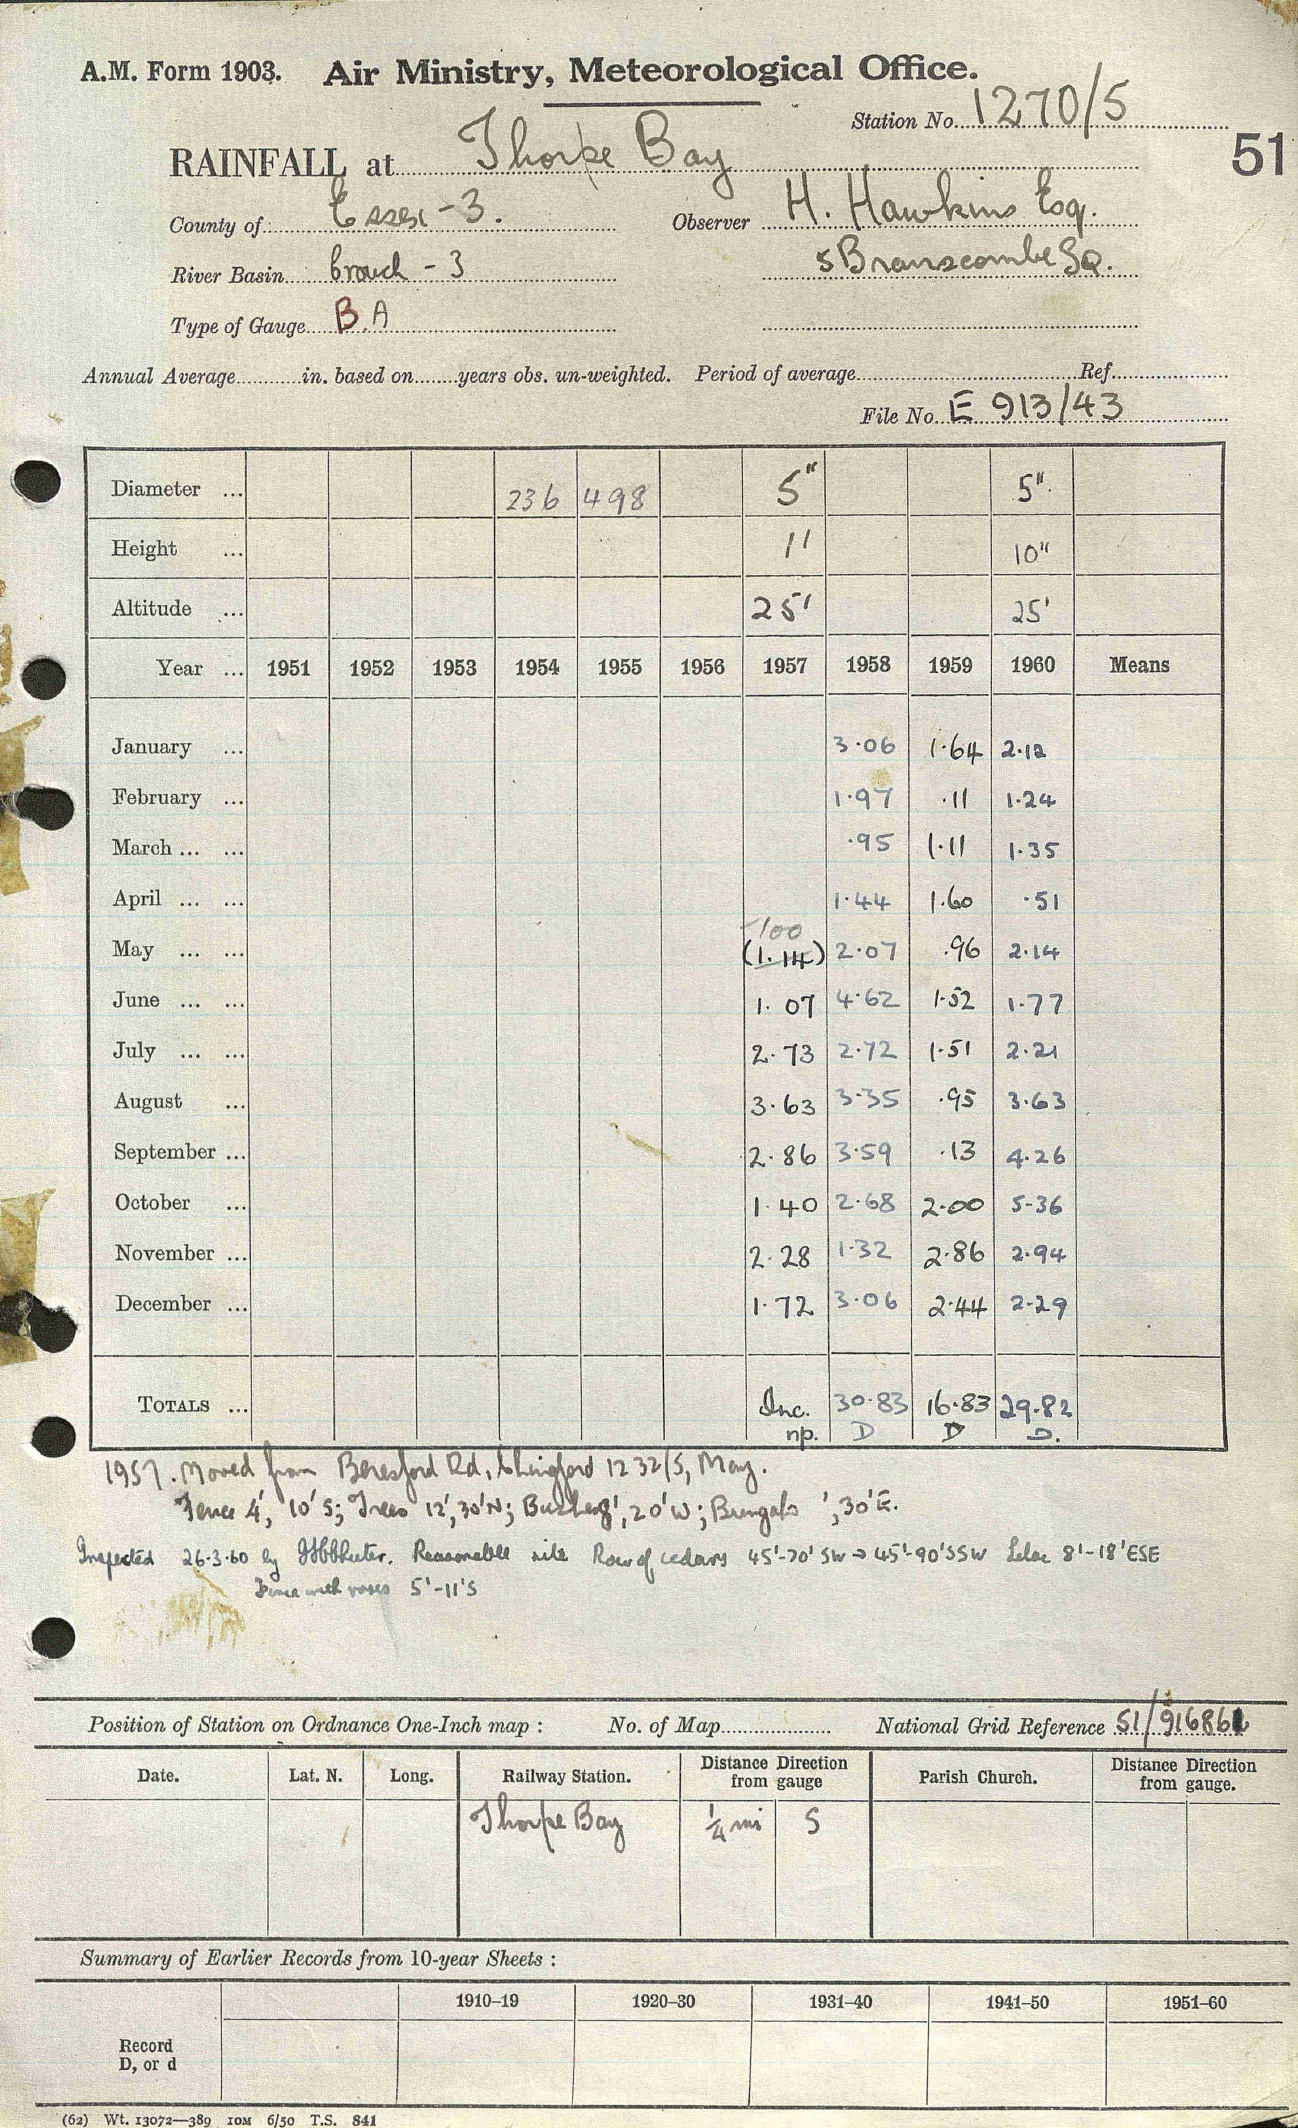 A.M. Form 1903. Air Ministry, Meteorological Office.
Station No. 1270/5
51
RAINFALL at Thorpe Bay
County of Essex - 3. Observer H. Hawkins Esq.
River Basin Crouch - 3 5 Branscombe Sq.
Type of Gauge B.A
Annual Average in. based on years obs. un-weighted. Period of average Ref.
File No. E 913/43
Diameter ... 236 498 5" 5"
Height ... 1' 10"
Altitude ... 25' 25'
Year ... 1951 1952 1953 1954 1955 1956 1957 1958 1959 1960 Means
January ... 3.06 1.64 2.12
February ... 1.97 .11 1.24
March ... ... .95 1.11 1.35
April ... ... 1.44 1.60 .51
100
May ... ... (1.14) 2.07 .96 2.14
June ... ... 1.07 4.62 1.52 1.77
July ... ... 2.73 2.72 1.51 2.21
August ... 3.63 3.35 .95 3.63
September ... 2.86 3.59 .13 4.26
October ... 1.40 2.68 2.00 5.36
November ... 2.28 1.32 2.86 2.94
December ... 1.72 3.06 2.44 2.29
TOTALS ... Inc. 30.83 16.83 29.82
np. D D D.
1957. Moved from Beresford Rd, Chingford 1232/5, May.
Fence 4', 10' S; Trees 12', 30' N; Bushes 8', 20' W; Bungalo ', 30' E.
Inspected 26.3.60 by Reasonable site Row of cedars 45'-70' SW → 45'-90' SSW Lilac 8'-18' ESE
Fence with roses 5'-11' S
Position of Station on Ordnance One-Inch map : No. of Map National Grid Reference 51/916861
Date. Lat. N. Long. Railway Station. Distance Direction from gauge Parish Church. Distance Direction from gauge.
Thorpe Bay ¼ mi S
Summary of Earlier Records from 10-year Sheets :
1910–19 1920–30 1931–40 1941–50 1951–60
Record
D, or d
(62) Wt. 13072—389 10M 6/50 T.S. 841